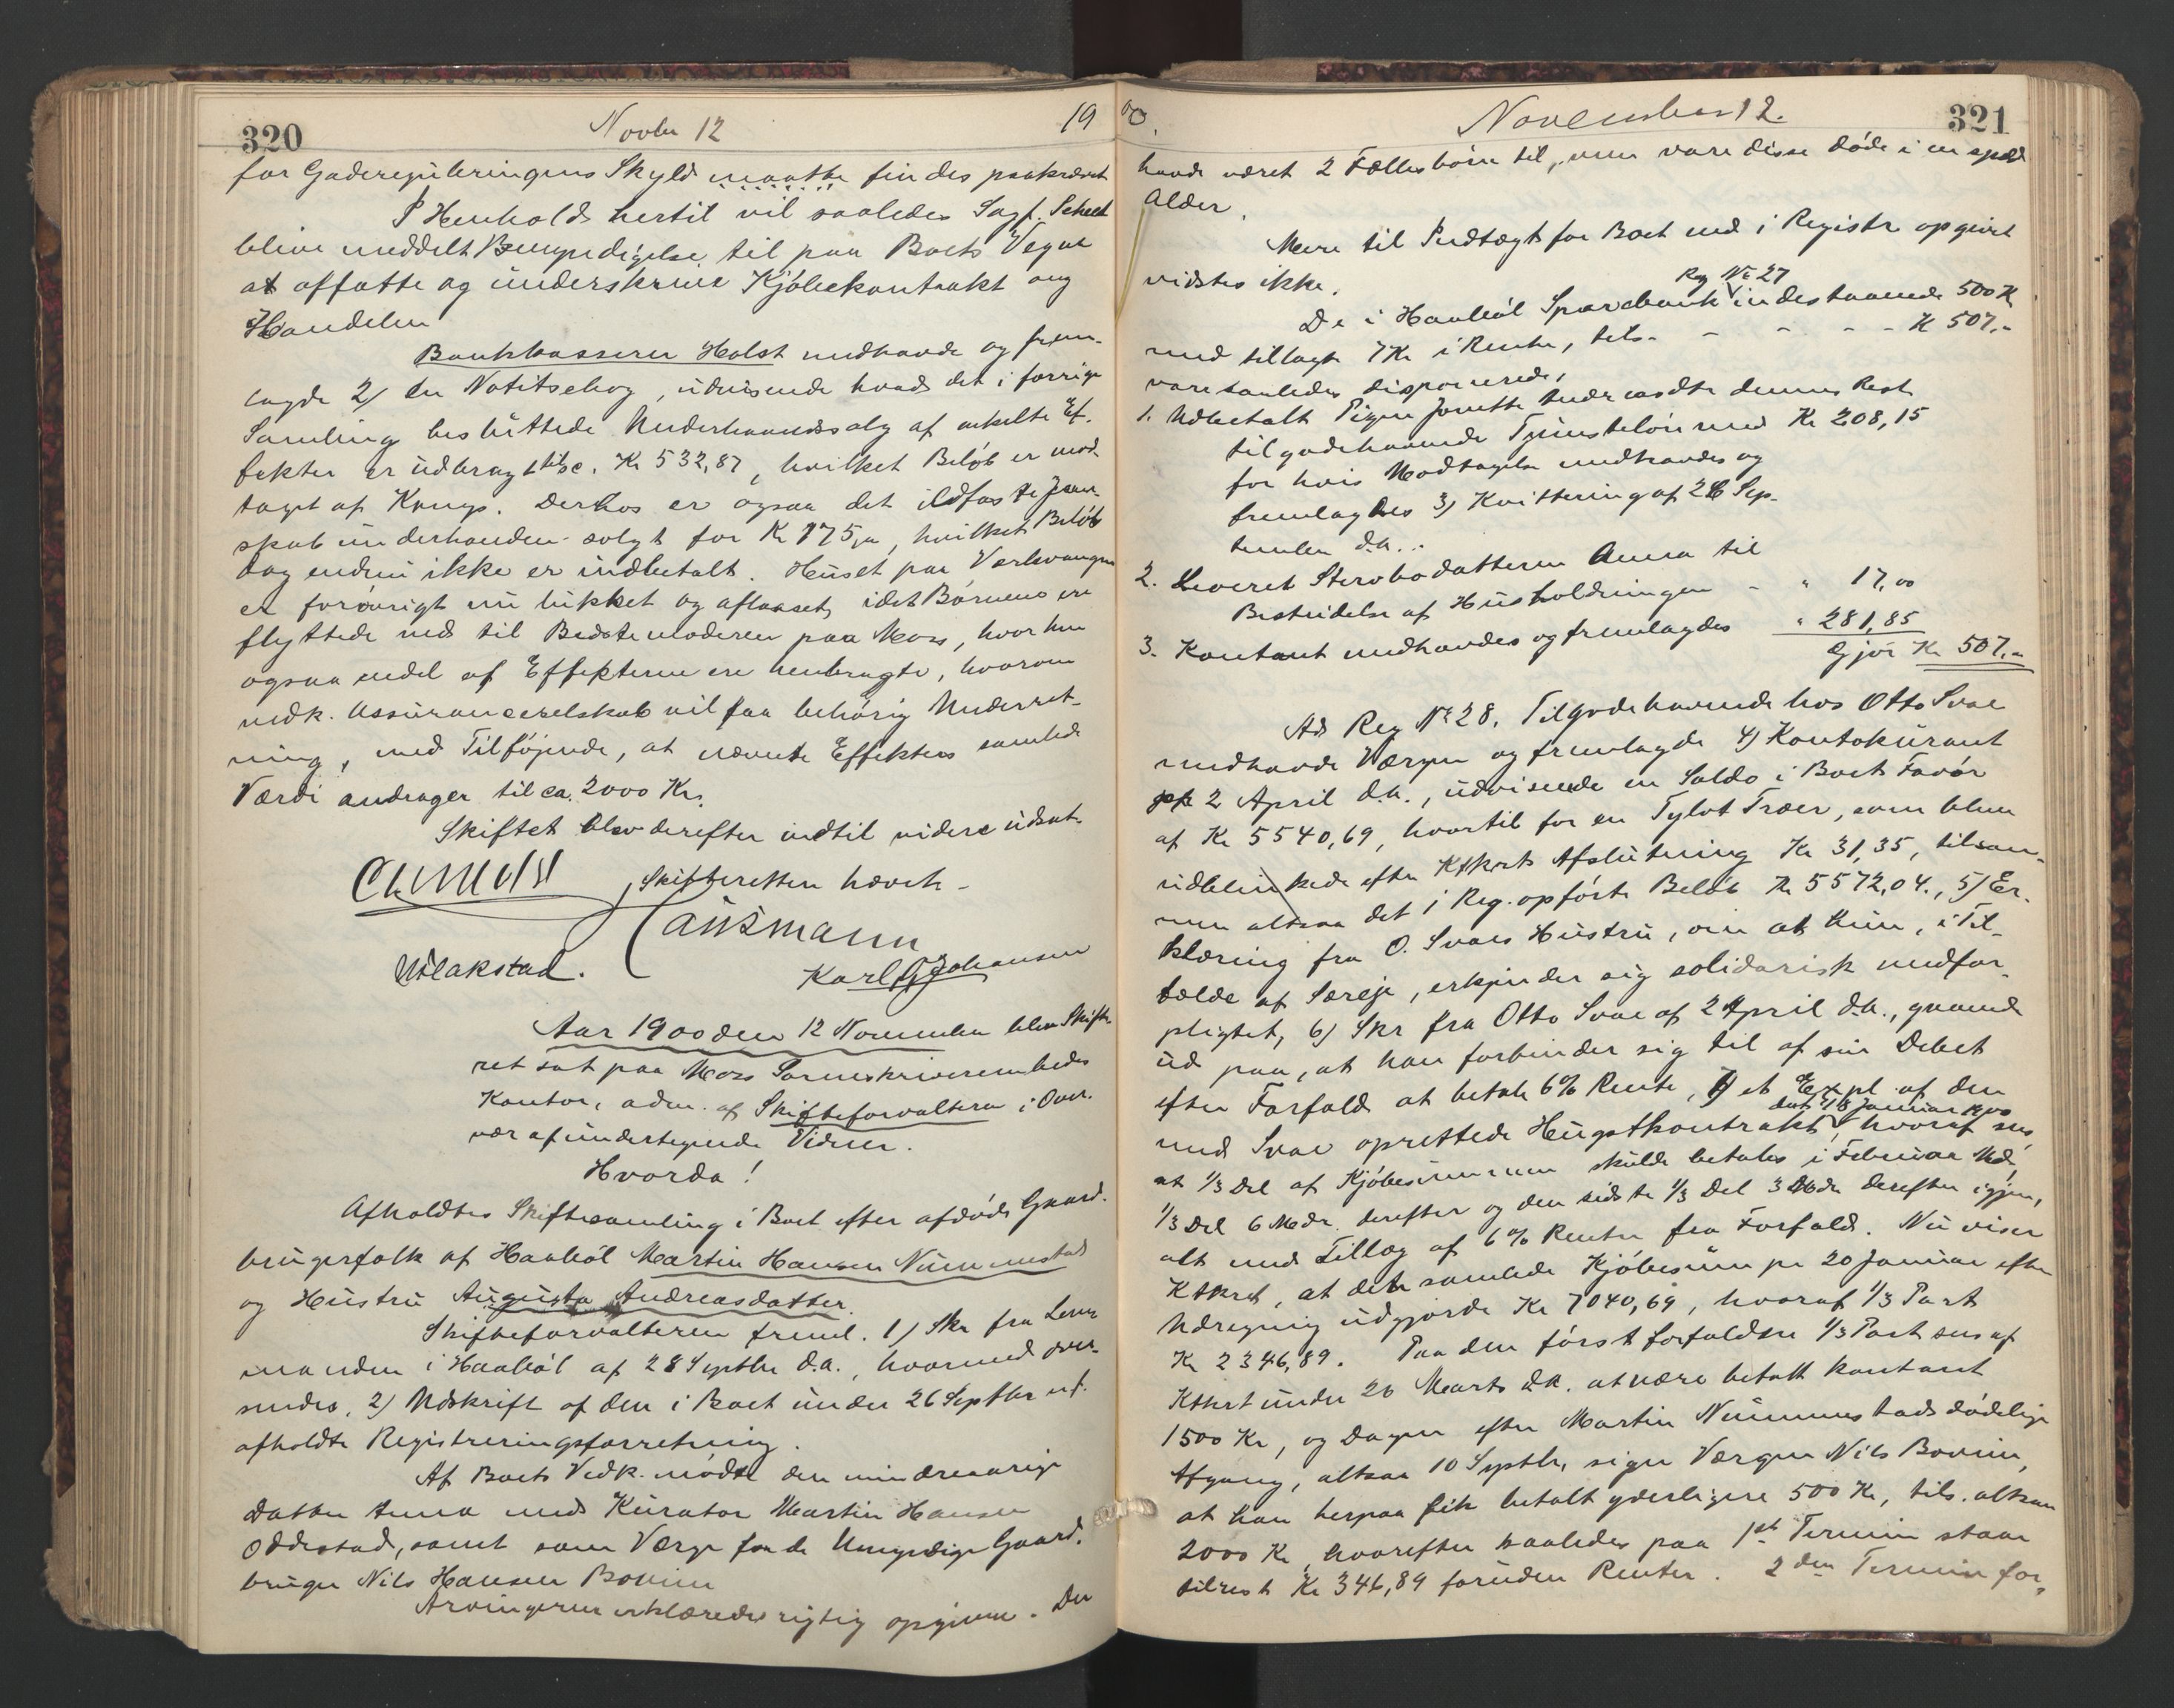 320
Novbr 12
19
for Gaderegüleringens Skyld maatte findes paakrævet
I Henhold hertil vil saaledes Sagf. Scheel
blive meddelt Bemyndigelse til paa Boets Vegne
at affatte og ünderskrive Kjøbekontrakt ang
Handelen
Bankkasserer Holst medhavde og frem-
lagde 2) en Notitsebog, üdvisende hvad det i forrige
Samling beslüttede Ünderhaandssalg af enkelte Ef-
fekter er üdbragt til, Kr 532,87, hvilket Beløb er mod-
taget af Komp. Derhos er ogsaa det ildfaste Jern-
skab ünderhaanden solgt for Kr 175,00, hvilket Beløb
dog endnü ikke er indbetalt. Hüset paa Verkvangen
er forøvrigt nü lükket og aflaaset, idet Børnene ere
flyttede ned til Bedstemoderen paa Moss, hvor hen
ogsaa endel af Effekterne ere henbragte, hvorom
vedk. Assüranceselskab vil faa behørig Ünderret-
ning, med Tilføjende, at nævnte Effekters samlede
Værdi andrager til ca. 2000 Kr.
Skiftet blev derefter indtil videre üdsat.
Skifteretten hævet
Lausmann
Karl G Johansen
Aar 1900 den 12 November blev Skifte-
ret sat paa Moss Sorenskriverembedes
Kontor, adm. af Skifteforvalteren i Over-
vær af ündertegnede Vidner.
Hvorda!
Afholdtes Skiftesamling i Boet efter afdøde Gaard-
brügerfolk af Haabøl Martin Hansen Nümmestad
og Hüstrü Aügüsta Andreasdatter.
Skifteforvalteren freml. 1) Skr fra Lens-
manden i Haabøl af 28 Septbr d.a., hvormed over-
sendes, 2) Üdskrift af den i Boet ünder 26 Septbr
afholdte Registreringsforretning.
Af Boets Vedk. mødte den mindreaarige
Datter Anna med Kürator Martin Hansen
Oddestad, samt som Værge for de Ümyndige Gaard-
brüger Nils Hansen Bovim
Arvingerne erklæredes rigtig opgivne. Der
00.
November 12.
321
havde været 2 Fællesbørn til, men vare disse døde i en spæd
Alder.
Mere til Indtægt for Boet end i Registr opgivet
vidstes ikke.
Reg No 27
De i Haabøl Sparebank indestaaende 500 Kr
med tillagte 7 Kr i Rente, tils. - - - - Kr 507.-
vare saaledes disponerede,
1. Üdbetalt Pigen Jonette Andreasdtr dennes Rest
tilgodehavende Tjenesteløn med Kr 208,15
for hvis Modtagelse medhavdes og
fremlagdes 3) Kvittering af 26 Sep-
tember d.a..
2. Leveret Stervbodatteren Anna til
Bestridelse af Hüsholdningen - " 17,00
3. Kontant medhavdes og fremlagdes " 281,85
Gjør Kr 507.-
Ad Reg No 28. Tilgodehavende hos Otto Svae
medhavde Værgen og fremlagde 4) Kontokürant
pr 2 April d.a., üdvisende en Saldo i Boets Favør
af Kr 5540,69, hvortil for en Tylvt Træer, som bleve
üdblinkede efter Ktkrts Afslütning Kr 31,35, tilsam-
men altsaa det i Reg. opførte Beløb Kr 5572,04., 5) Er-
klæring fra O. Svaes Hüstrü, om at hün, i Til-
fælde af Særeje, erkjender sig solidarisk medfor-
pligtet, 6) Skr fra Otto Svae af 2 April d.a., gaaende
üd paa, at han forbinder sig til af sin Debet
efter Forfald at betale 6% Rente, 7) et Expl. af den
dat 18 Janüar 1900
med Svae oprettede Hügstkontrakt, hvoraf sees,
at 1/3 Del af Kjøbesümmen skülde betales i Febrüar Md,
1/3 Del 6 Mdr. derefter og den sidste 1/3 Del 3 Mdr derefter igjen,
alt med Tillæg af 6% Renter fra Forfald. Nü viser
Ktkrt, at den samlede Kjøbesüm pr 20 Janüar efter
Üdregning üdgjorde Kr 7040,69, hvoraf 1/3 Part
Kr 2346,89. Paa den først forfaldne 1/3 Part sees af
Ktkrt ünder 20 Marts d.a. at være betalt kontant
1500 Kr, og Dagen efter Martin Nümmestads dødelige
Afgang, altsaa 10 Septbr, siger Værgen Nils Bovim,
at han herpaa fik betalt yderligere 500 Kr, tils. altsaa
2000 Kr, hvorefter saaledes paa 1ste Termin staar
tilrest Kr 346,89 forüden Renter. 2den Termin for-